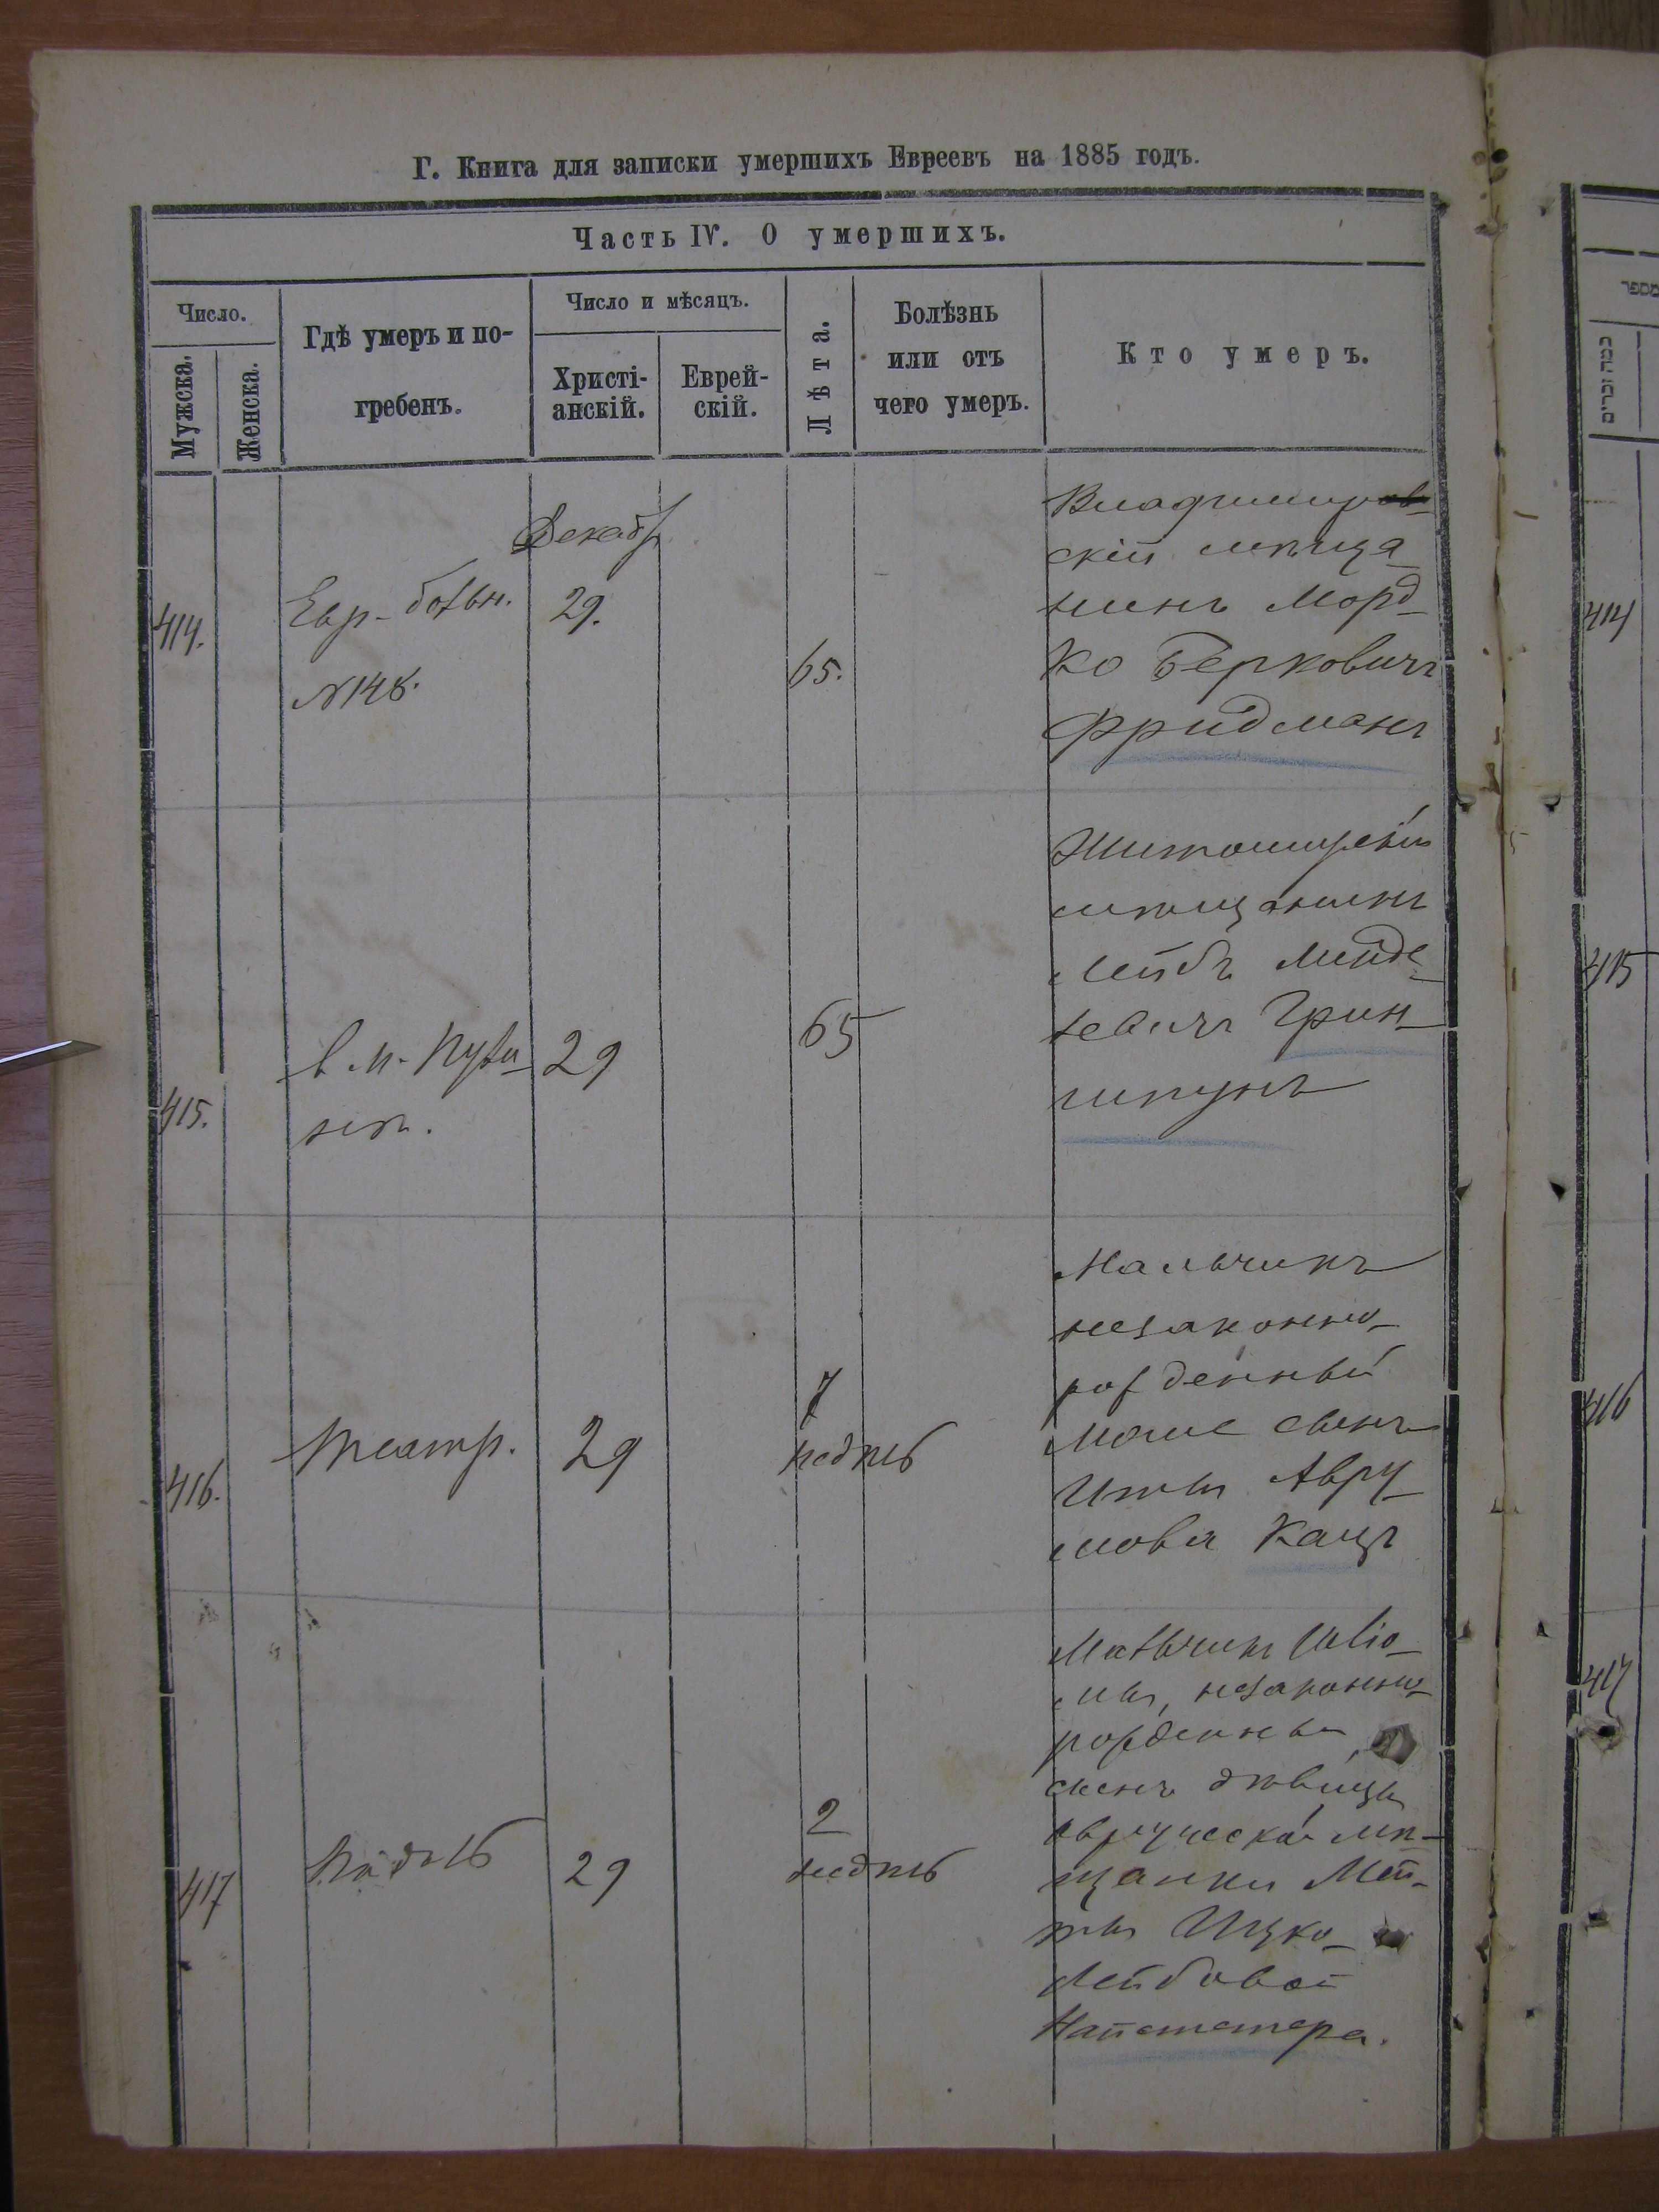 Г. Книга для записки умершихъ Евреевъ на 1885 годъ.
Часть IV. О умершихъ.
Число.
Мужска.
Женска.
Гдѣ умеръ и по-
гребенъ.
Число и мѣсяцъ.
Христі-
анскій.
Еврей-
скій.
Лѣта.
Болѣзнь
или отъ
чего умеръ.
Кто умеръ.
414.
Евр. больн.
№ 148.
Декабр
29.
65.
Владимиров-
скій мѣща-
нинъ Морд-
ко Берковичъ
Фридманъ
415.
29
65
Житомирскій
мѣщанинъ
Лейбъ
Грин-
шпунъ
416.
театр.
29
7
недѣль
Мальчикъ
незаконно-
рожденный
Моше сынъ
Иты Авру-
мова Кацъ
417
29
2
недѣль
Мальчикъ Шліо-
мы, незаконно-
рожденный,
сынъ дѣвицы
овручской мѣ-
щанки
Ицко-
Лейбовой
מספר
414
415
416
417